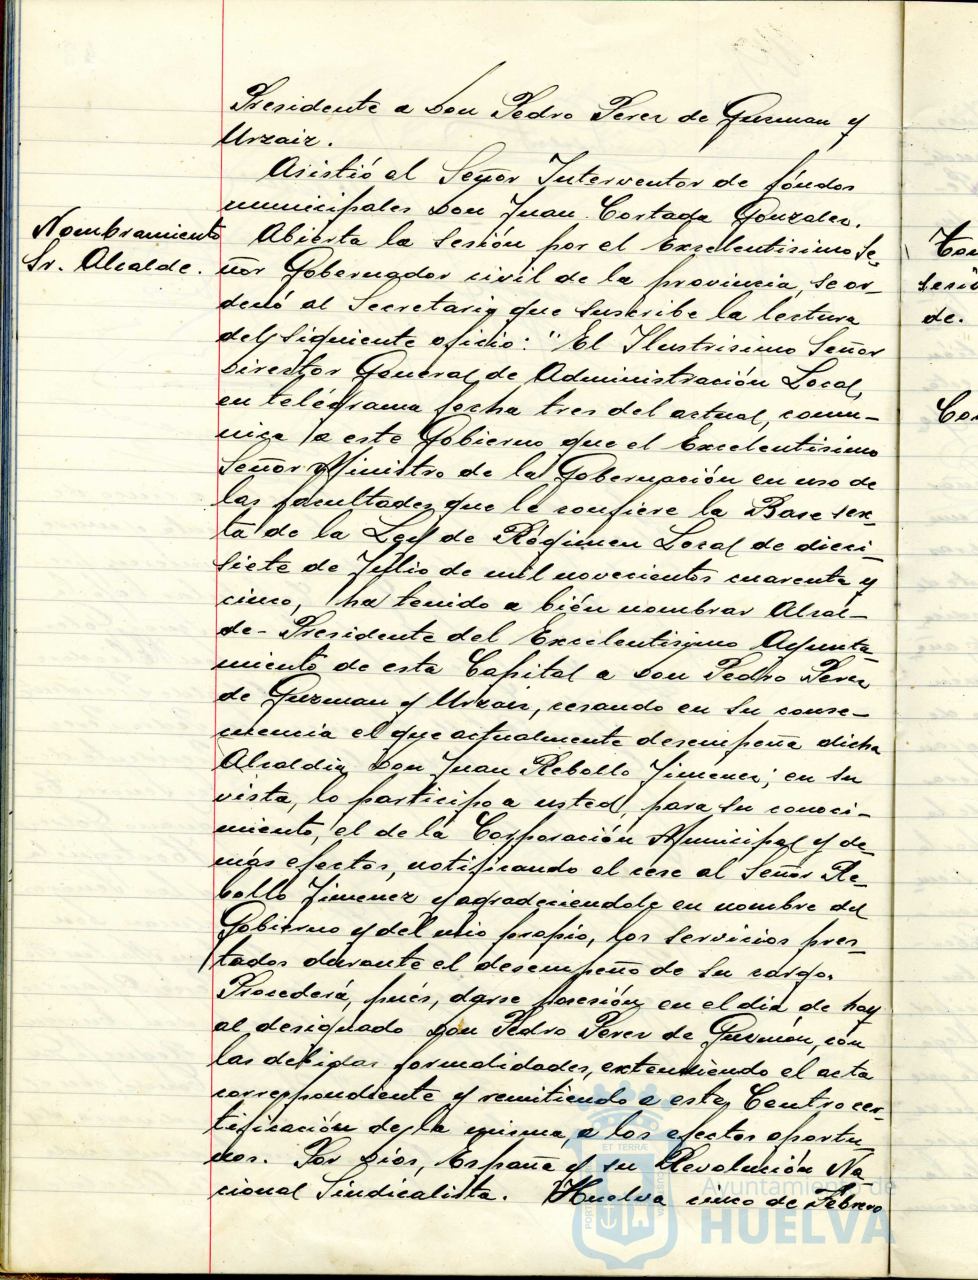 Presidente a Don Pedro Perez de Guzman y
Urzaiz.
Asistió el Señor Interventor de fóndos
municipales Don Juan Cortada Gonzalez.
Nombramiento
Sr. Alcalde.
Abierta la sesión por el Excelentisimo Se-
ñor Gobernador civil de la provincia, se or-
denó al Secretario que suscribe la lectura
del siguiente oficio: "El Ilustrisimo Señor
Director General de Administración Local,
en telégrama fecha tres del actual, comu-
nica a este Gobierno que el Excelentisimo
Señor Ministro de la Gobernación en uso de
las facultades que le confiere la Base sex-
ta de la Ley de Régimen Local de dieci-
siete de Julio de mil novecientos cuarenta y
cinco, ha tenido a bién nombrar Alcal-
de-Presidente del Excelentisimo Ayunta-
miento de esta Capital a Don Pedro Perez
de Guzman y Urzaiz, cesando en su conse-
cuencia el que actualmente desempeña dicha
Alcaldia, Don Juan Rebollo Jimenez; en su
vista, lo participo a usted, para su conoci-
miento, el de la Corporación Municipal y de-
más efectos, notificando el cese al Señor Re-
bollo Jimenez y agradeciendole en nombre del
Gobierno y del mio propio, los servicios pres-
tados durante el desempeño de su cargo.
Procederá, pués, darse posesión en el dia de hoy
al designado Don Pedro Perez de Guzmán, con
las debidas formalidades, extendiendo el acta
correspondiente y remitiendo a este Centro cer-
tificación de la misma, a los efectos oportu-
nos. Por Diós, España y su Revolución Na-
cional Sindicalista. Huelva cinco de Febrero
de.
Ayuntamiento de
HUELVA